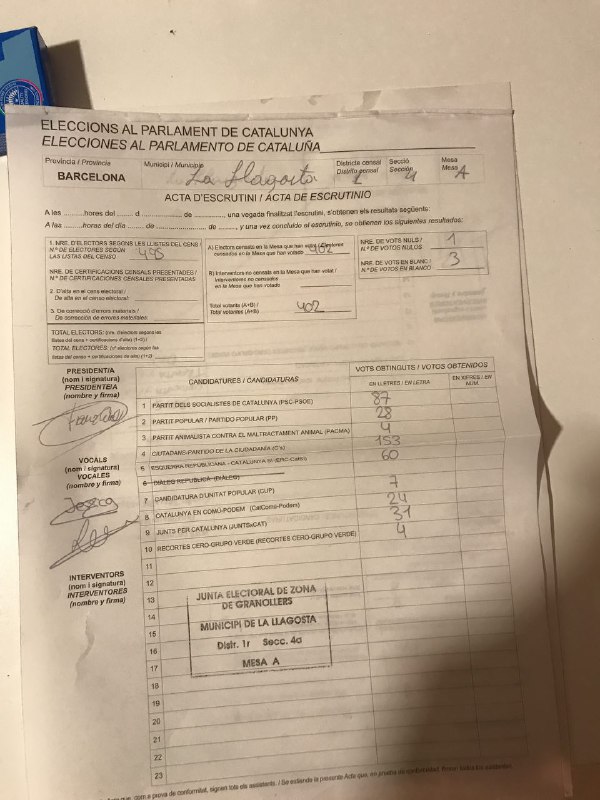 ELECCIONS AL PARLAMENT DE CATALUNYA
ELECCIONES AL PARLAMENTO DE CATALUÑA
Província / Provincia
Municipi / Municipio
Districte censal
Distrito censal
Secció
Sección
Mesa
Mesa
BARCELONA
La Llagosta
1
4
A
ACTA D'ESCRUTINI / ACTA DE ESCRUTINIO
A les hores del d de de , una vegada finalitzat l'escrutini, s'obtenen els resultats següents:
A las horas del día de de , y una vez concluido el escrutinio, se obtienen los siguientes resultados:
1. NRE. D'ELECTORS SEGONS LES LLISTES DEL CENS /
N.º DE ELECTORES SEGÚN
LAS LISTAS DEL CENSO
495
NRE. DE CERTIFICACIONS CENSALS PRESENTADES /
N.º DE CERTIFICACIONES CENSALES PRESENTADAS
2. D'alta en el cens electoral /
De alta en el censo electoral:
3. De correcció d'errors materials /
De corrección de errores materiales:
TOTAL ELECTORS:
TOTAL ELECTORES:
A) Electors censats en la Mesa que han votat / Electores
censados en la Mesa que han votado
402
B) Interventors no censats en la Mesa que han votat /
Interventores no censados
en la Mesa que han votado
Total votants (A+B) /
Total votantes (A+B)
402
NRE. DE VOTS NULS /
N.º DE VOTOS NULOS
1
NRE. DE VOTS EN BLANC /
N.º DE VOTOS EN BLANCO
3
PRESIDENTIA
(nom i signatura)
PRESIDENTEIA
(nombre y firma)
VOCALS
(nom i signatura)
VOCALES
(nombre y firma)
INTERVENTORS
(nom i signatura)
INTERVENTORES
(nombre y firma)
CANDIDATURES / CANDIDATURAS
VOTS OBTINGUTS / VOTOS OBTENIDOS
EN LLETRES / EN LETRA
EN XIFRES / EN NÚM.
1 PARTIT DELS SOCIALISTES DE CATALUNYA (PSC-PSOE) 87
2 PARTIT POPULAR / PARTIDO POPULAR (PP) 28
3 PARTIT ANIMALISTA CONTRA EL MALTRACTAMENT ANIMAL (PACMA) 4
4 CIUTADANS-PARTIDO DE LA CIUDADANÍA (C's) 153
5 ESQUERRA REPUBLICANA - CATALUNYA SÍ (ERC-CatSí) 60
6 DIÀLEG REPUBLICÀ (DIÀLEG)
7 CANDIDATURA D'UNITAT POPULAR (CUP) 7
8 CATALUNYA EN COMÚ-PODEM (CatComú-Podem) 24
9 JUNTS PER CATALUNYA (JUNTSxCAT) 31
10 RECORTES CERO-GRUPO VERDE (RECORTES CERO-GRUPO VERDE) 4
11
12
13
14
15
16
17
18
19
20
21
22
23
JUNTA ELECTORAL DE ZONA
DE GRANOLLERS
MUNICIPI DE LA LLAGOSTA
Distr. 1r Secc. 4a
MESA A